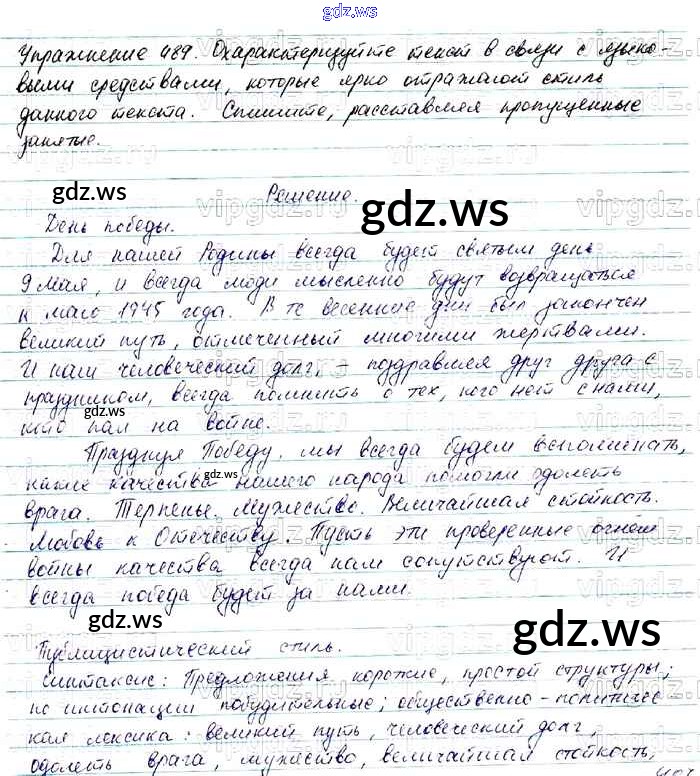 gdz.ws
Упражнение 489. Охарактеризуйте текст в связи с языко-
выми средствами, которые ярко отражают стиль
данного текста. Спишите, расставляя пропущенные
запятые.
Решение.
gdz.ws
gdz.ws
День победы.
Для нашей Родины всегда будет святым день
9 Мая, и всегда люди мысленно будут возвращаться
к маю 1945 года. В те весенние дни был закончен
великий путь, отмеченный многими жертвами.
И наш человеческий долг, - поздравляя друг друга с
праздником, всегда помнить о тех, кого нет с нами,
gdz.ws
кто пал на войне.
Празднуя Победу, мы всегда будем вспоминать,
какие качества нашего народа помогли одолеть
gdz.ws
врага. Терпенье. Мужество. Величайшая стойкость.
Любовь к Отечеству. Пусть эти проверенные огнём
войны качества всегда нам сопутствуют. И
всегда победа будет за нами.
gdz.ws
gdz.ws
Публицистический стиль.
Синтаксис: Предложения короткие, простой структуры;
по интонации побудительные; общественно-политичес
кая лексика: великий путь, человеческий долг,
gdz.ws
одолеть врага, мужество, величайшая стойкость,